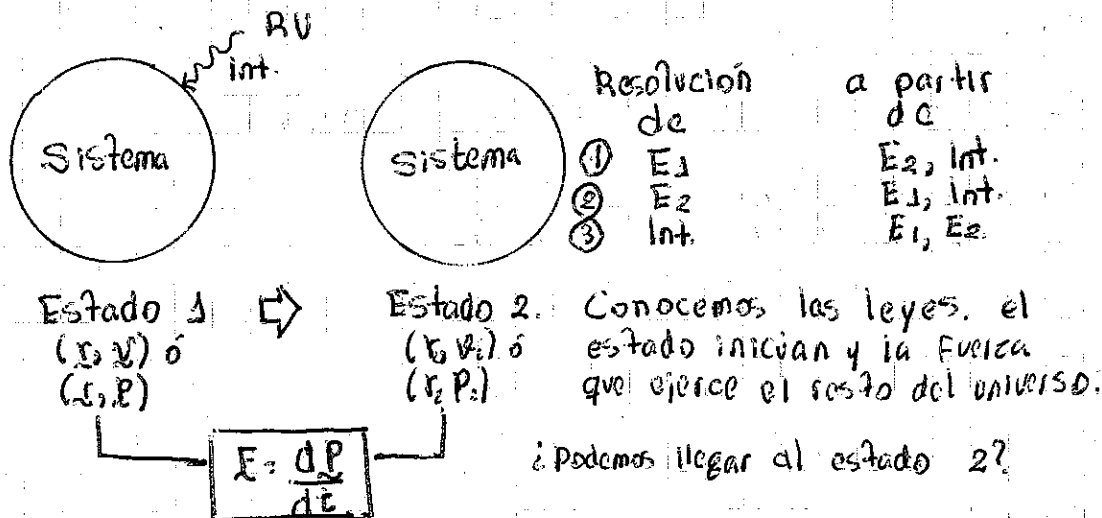 RU
int.
Sistema
Sistema
Resolución de
a partir de
① E1 E2, Int.
② E2 E1, Int.
③ Int. E1, E2.
Estado 1 ⇨ Estado 2.
(r, v) ó
(r, p)
(r2 v2) ó
(r2 p2)
F = dP/dt
Conocemos las leyes. el
estado inician y la Fuerza
que ejerce el resto del universo.
¿Podemos llegar al estado 2?